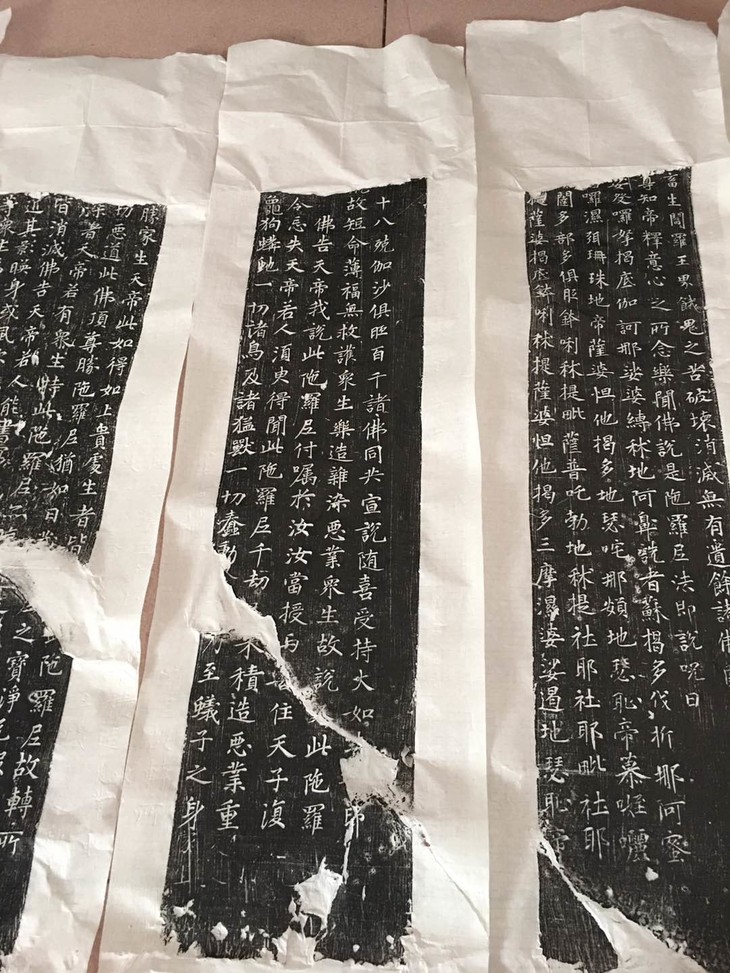 當生閻羅王界餓鬼之苦破壞消滅無有遺餘諸佛國
尊知帝釋意心之所念樂聞佛說是陀羅尼法即說呪曰
娑婆囉拏揭底伽訶那娑婆縛秫地阿鼻詵者蘇揭多伐折那阿蜜
囉濕弭珊珠地帝薩婆怛他揭多地瑟咤那頞地瑟恥帝慕㗚
闍多部多俱胝鉢唎秫提毗薩普吒勃地秫提社耶社耶毗社耶
薩婆揭底鉢唎秫提薩婆怛他揭多三摩濕婆娑遏地瑟恥帝
十八殑伽沙俱胝百千諸佛同共宣說随喜受持大如 印
故短命薄福無救護衆生樂造雜染惡業衆生故說此陀羅
佛告天帝我說此陀羅尼付囑於汝汝當授与 住天子復
令忘失天帝若人須臾得聞此陀羅尼千劫 來積造惡業重
龜狗蟒虵一切諸鳥及諸猛獸一切蠢動 乃至蟻子之身
勝家生天帝此如得如上貴處生者皆
切惡道此佛頂尊勝陀羅尼猶如日
除者天帝若有衆生持此陀羅尼
皆消滅佛告天帝若人能書
近其影暎身或風
等衆生
陀羅尼故轉所
之寶淨